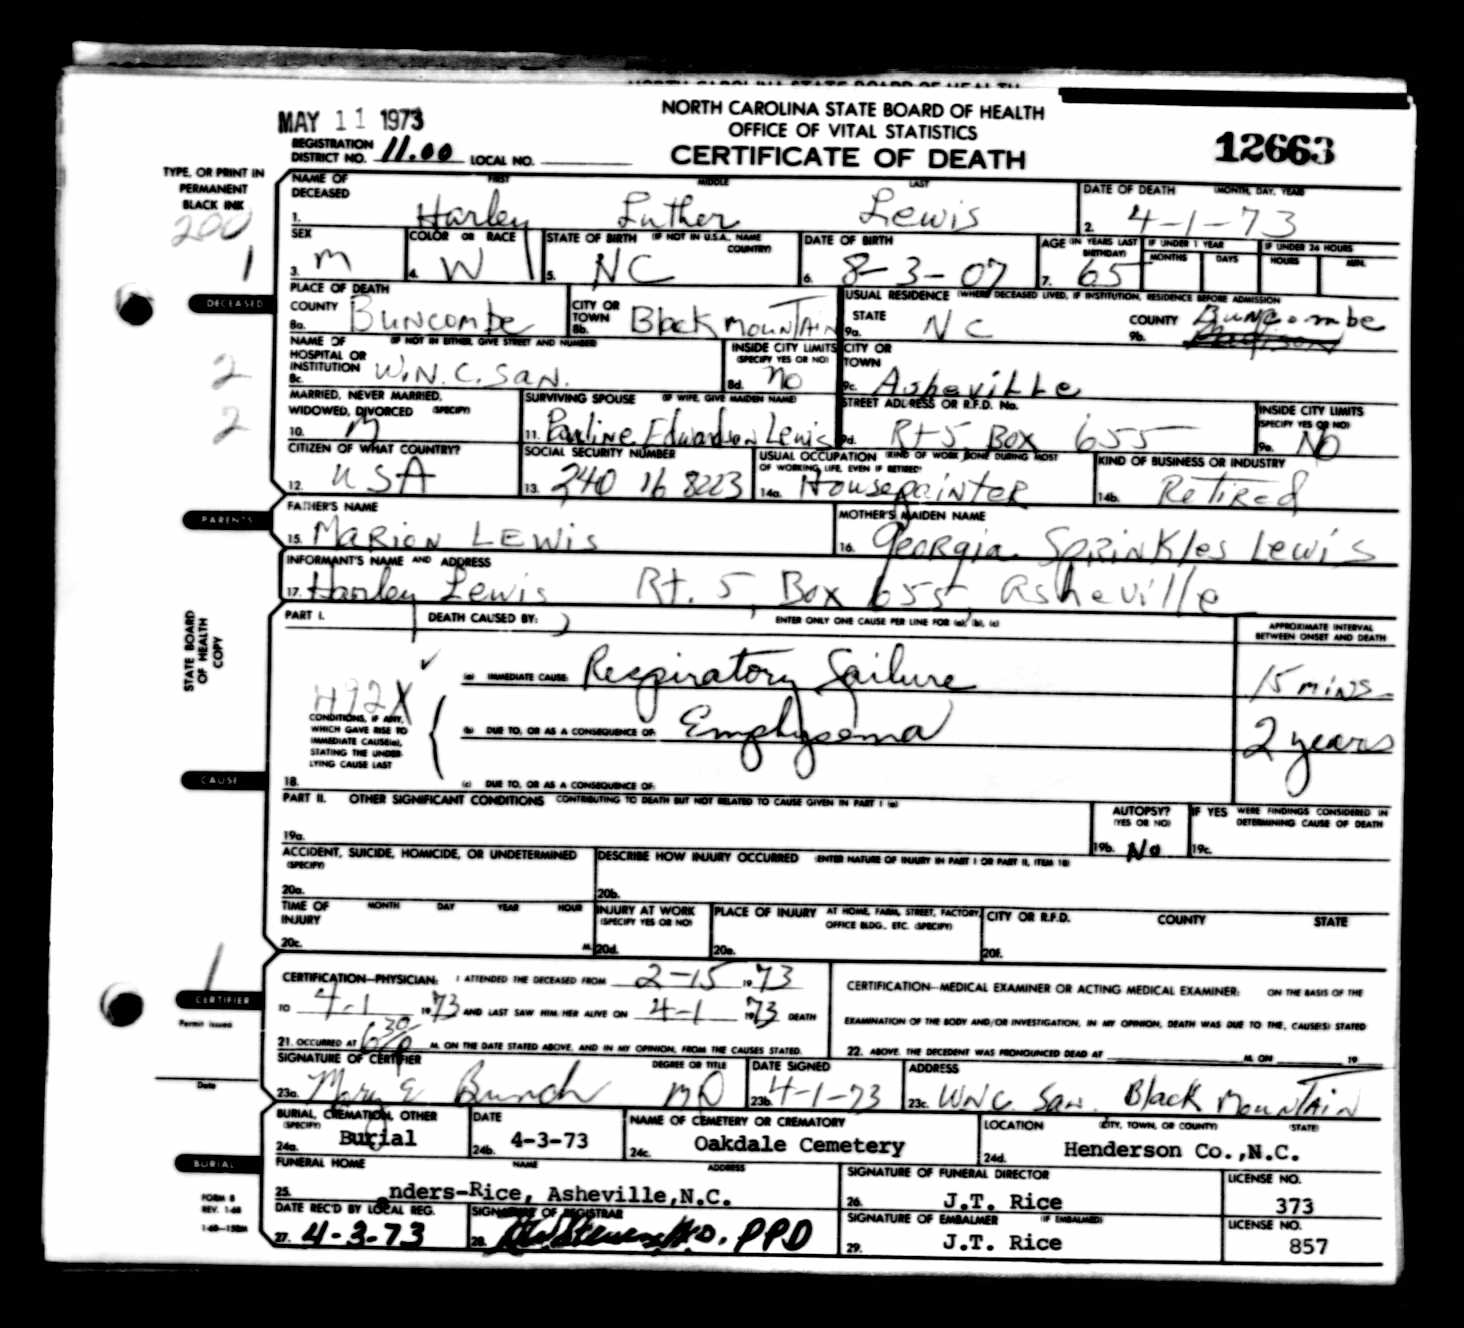 NORTH CAROLINA STATE BOARD OF HEALTH
MAY 11 1973
NORTH CAROLINA STATE BOARD OF HEALTH
OFFICE OF VITAL STATISTICS
CERTIFICATE OF DEATH
12663
REGISTRATION DISTRICT NO. 11.00 LOCAL NO.
TYPE, OR PRINT IN
PERMANENT
BLACK INK
200
1
NAME OF DECEASED FIRST MIDDLE LAST
1. Harley Luther Lewis
DATE OF DEATH (MONTH, DAY, YEAR)
2. 4-1-73
SEX
3. M
COLOR OR RACE
4. W
STATE OF BIRTH (IF NOT IN U.S.A., NAME COUNTRY)
5. NC
DATE OF BIRTH
6. 8-3-07
AGE (IN YEARS LAST BIRTHDAY)
7. 65
IF UNDER 1 YEAR
MONTHS DAYS
IF UNDER 24 HOURS
HOURS MIN.
DECEASED
PLACE OF DEATH
COUNTY
8a. Buncombe
CITY OR TOWN
8b. Black Mountain
USUAL RESIDENCE (WHERE DECEASED LIVED, IF INSTITUTION, RESIDENCE BEFORE ADMISSION
STATE
9a. NC
COUNTY
9b. Buncombe
Madison
2
NAME OF HOSPITAL OR INSTITUTION (IF NOT IN EITHER, GIVE STREET AND NUMBER)
8c. W.N.C. San.
INSIDE CITY LIMITS (SPECIFY YES OR NO)
8d. no
CITY OR TOWN
9c. Asheville
2
MARRIED, NEVER MARRIED, WIDOWED, DIVORCED (SPECIFY)
10. M
SURVIVING SPOUSE (IF WIFE, GIVE MAIDEN NAME)
11. Pauline Edwardson Lewis
STREET ADDRESS OR R.F.D. No.
9d. Rt 5 Box 655
INSIDE CITY LIMITS (SPECIFY YES OR NO)
9e. NO
CITIZEN OF WHAT COUNTRY?
12. USA
SOCIAL SECURITY NUMBER
13. 240 16 8223
USUAL OCCUPATION (KIND OF WORK DONE DURING MOST OF WORKING LIFE, EVEN IF RETIRED)
14a. Housepainter
KIND OF BUSINESS OR INDUSTRY
14b. Retired
PARENTS
FATHER'S NAME
15. Marion Lewis
MOTHER'S MAIDEN NAME
16. Georgia Sprinkles Lewis
INFORMANT'S NAME AND ADDRESS
17. Harley Lewis Rt. 5, Box 655, Asheville
STATE BOARD
OF HEALTH
COPY
PART I. DEATH CAUSED BY: ENTER ONLY ONE CAUSE PER LINE FOR (a), (b), (c)
APPROXIMATE INTERVAL BETWEEN ONSET AND DEATH
(a) IMMEDIATE CAUSE: Respiratory Failure 15 mins
492X
CONDITIONS, IF ANY, WHICH GAVE RISE TO IMMEDIATE CAUSE(a), STATING THE UNDERLYING CAUSE LAST
(b) DUE TO, OR AS A CONSEQUENCE OF: Emphysema 2 years
CAUSE
18. (c) DUE TO, OR AS A CONSEQUENCE OF:
PART II. OTHER SIGNIFICANT CONDITIONS CONTRIBUTING TO DEATH BUT NOT RELATED TO CAUSE GIVEN IN PART I (a)
19a.
AUTOPSY? (YES OR NO)
19b. No
IF YES WERE FINDINGS CONSIDERED IN DETERMINING CAUSE OF DEATH
19c.
ACCIDENT, SUICIDE, HOMICIDE, OR UNDETERMINED (SPECIFY)
20a.
DESCRIBE HOW INJURY OCCURRED (ENTER NATURE OF INJURY IN PART I OR PART II, ITEM 18)
20b.
TIME OF INJURY MONTH DAY YEAR HOUR
20c. M.
INJURY AT WORK (SPECIFY YES OR NO)
20d.
PLACE OF INJURY AT HOME, FARM, STREET, FACTORY, OFFICE BLDG., ETC. (SPECIFY)
20e.
CITY OR R.F.D. COUNTY STATE
20f.
1
CERTIFIER
Permit issued
Date
CERTIFICATION—PHYSICIAN: I ATTENDED THE DECEASED FROM 2-15 19 73
TO 4-1 19 73 AND LAST SAW HIM/HER ALIVE ON 4-1 19 73 DEATH
21. OCCURRED AT 6 30/p M. ON THE DATE STATED ABOVE, AND IN MY OPINION, FROM THE CAUSES STATED.
CERTIFICATION—MEDICAL EXAMINER OR ACTING MEDICAL EXAMINER: ON THE BASIS OF THE
EXAMINATION OF THE BODY AND/OR INVESTIGATION, IN MY OPINION, DEATH WAS DUE TO THE, CAUSE(S) STATED
22. ABOVE. THE DECEDENT WAS PRONOUNCED DEAD AT M. ON 19
SIGNATURE OF CERTIFIER DEGREE OR TITLE
23a. Mary E Bunch MD
DATE SIGNED
23b. 4-1-73
ADDRESS
23c. WNC. San. Black Mountain
BURIAL, CREMATION, OTHER (SPECIFY)
24a. Burial
DATE
24b. 4-3-73
NAME OF CEMETERY OR CREMATORY
24c. Oakdale Cemetery
LOCATION (CITY, TOWN, OR COUNTY) (STATE)
24d. Henderson Co.,N.C.
BURIAL
FORM 8
REV. 1-68
FUNERAL HOME NAME ADDRESS
25. nders-Rice, Asheville,N.C.
SIGNATURE OF FUNERAL DIRECTOR
26. J.T. Rice
LICENSE NO.
373
DATE REC'D BY LOCAL REG.
27. 4-3-73
SIGNATURE OF REGISTRAR
28. Stevens M.D. PPD
SIGNATURE OF EMBALMER (IF EMBALMED)
29. J.T. Rice
LICENSE NO.
857